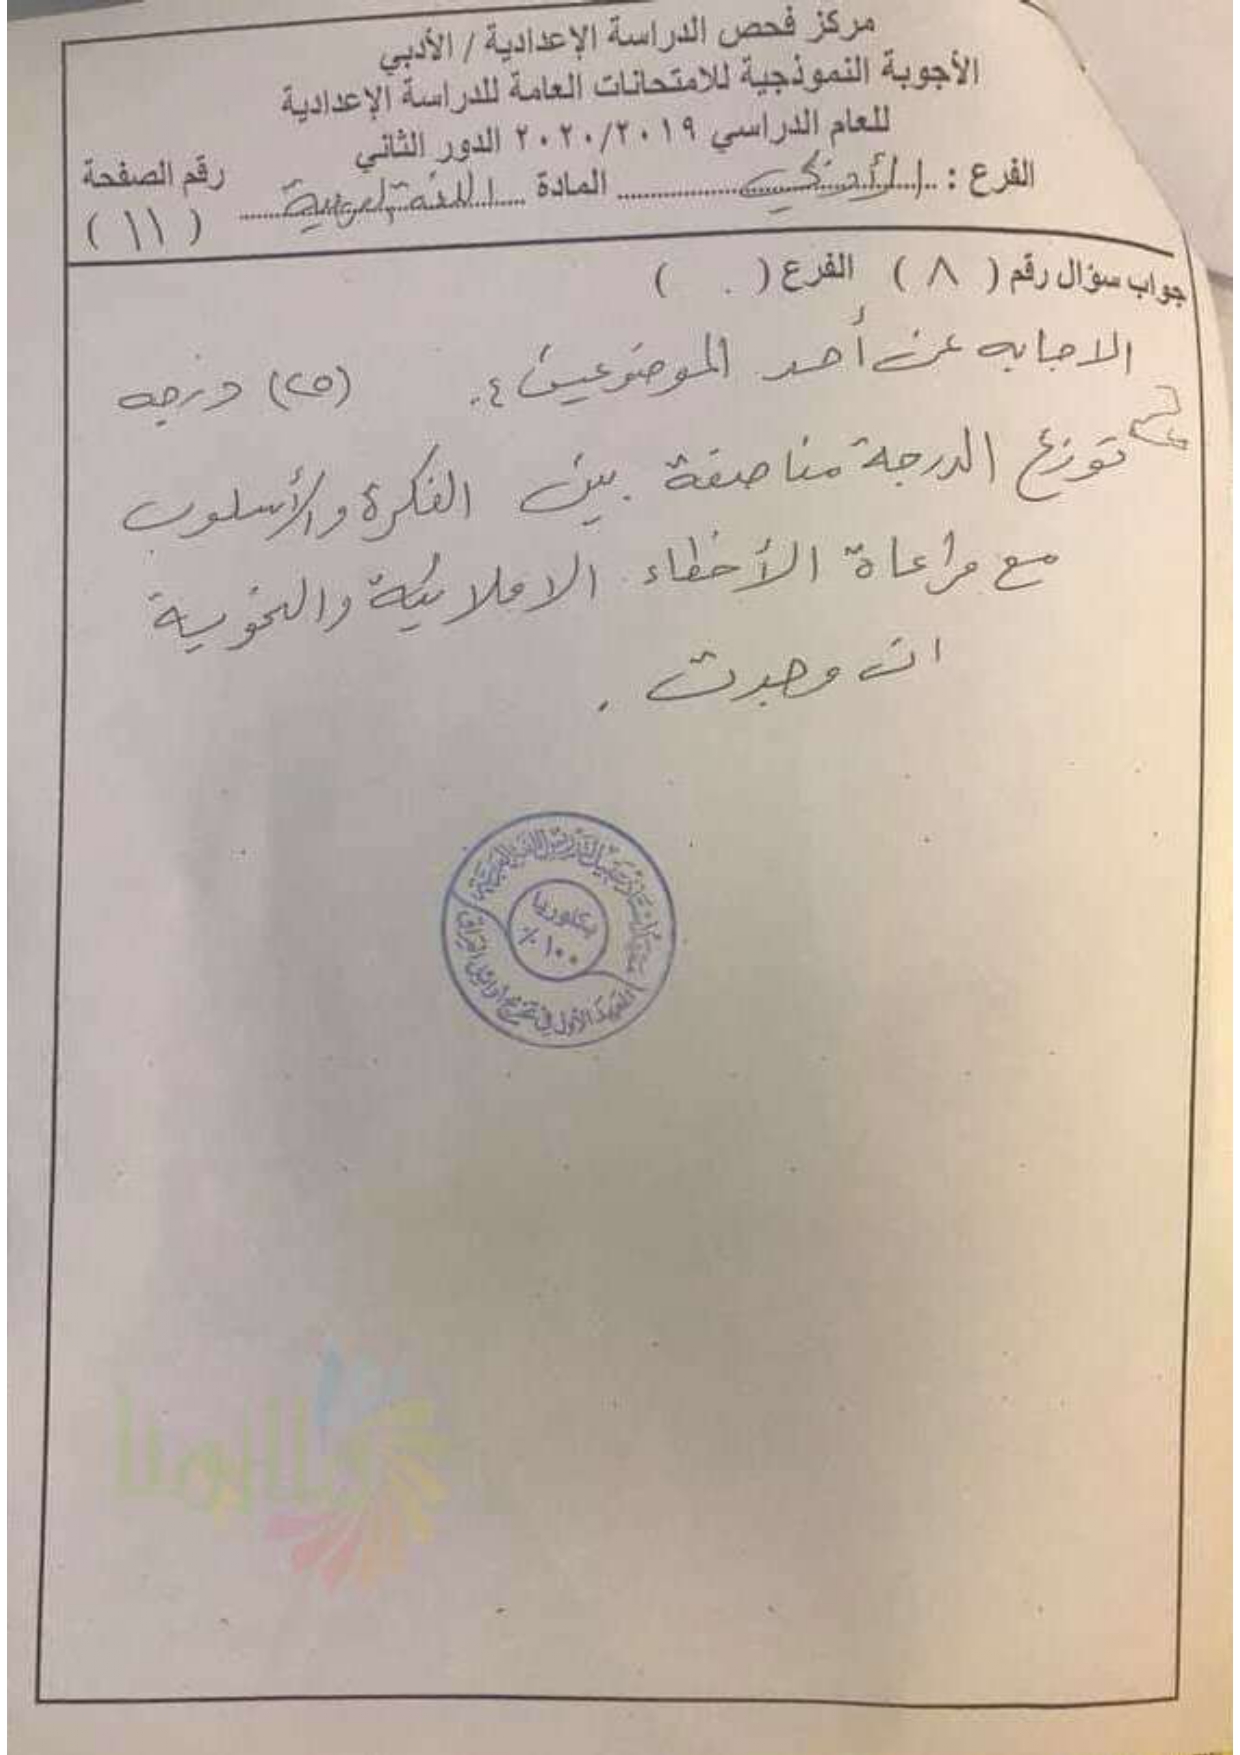 مركز فحص الدراسة الإعدادية / الأدبي
الأجوبة النموذجية للامتحانات العامة للدراسة الإعدادية
للعام الدراسي ٢٠٢٠/٢٠١٩ الدور الثاني
الفرع : الأدبي المادة اللغة العربية رقم الصفحة
( ١١ )
جواب سؤال رقم ( ٨ ) الفرع ( )
الاجابه عن أحد الموضوعين . (٢٥) درجه
توزع الدرجة مناصفة بين الفكرة والأسلوب
مع مراعاة الأخطاء الاملائية والنحوية
ان وجدت .
بكلوريا
١٠٠٪